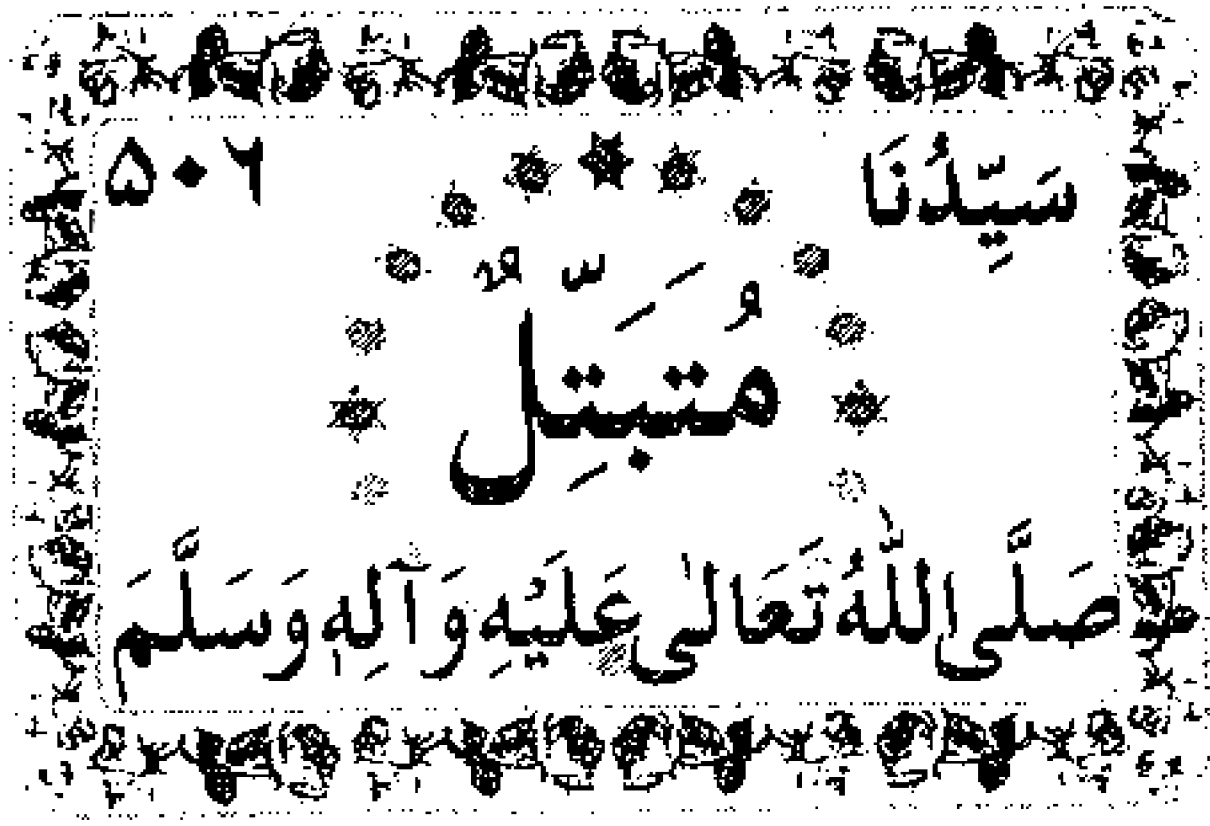 سَيِّدُنَا ۵۰۶
مُتَبَتِّلٌ
صَلَّى اللّٰهُ تَعَالٰى عَلَيْهِ وَآلِهٖ وَسَلَّمَ